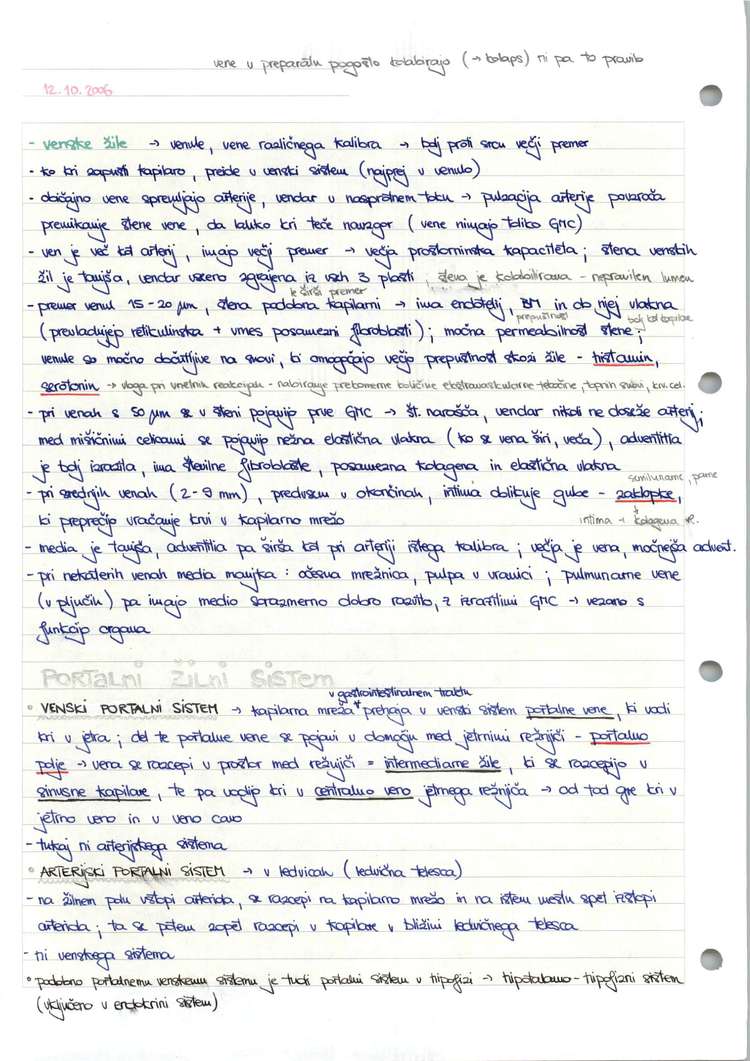 vene v preparatu pogosto kolabirajo (→ kolaps) ni pa to pravilo
12.10.2006
- venske žile → venule, vene različnega kalibra → bolj proti srcu večji premer
- ko kri zapusti kapilaro, preide v venski sistem (najprej v venulo)
- običajno vene spremljajo arterije, vendar v nasprotnem toku → pulzacija arterije povzroča
premikanje stene vene, da lahko kri teče navzgor (vene nimajo toliko GMC)
- ven je več kot arterij, imajo večji premer → večja prostorninska kapaciteta; stena venskih
žil je tanjša, vendar vseeno zgrajena iz vseh 3 plasti, stena je kolabilirana - nepravilen lumen
le širši premer
- premer venul 15-20 µm, stena podobna kapilarni → ima endotelij, BM in ob njej vlakna
prepustnost bolj kot kapilare
(prevladujejo retikulinska + vmes posamezni fibroblasti); močna permeabilnost stene;
venule so močno občutljive na snovi, ki omogočajo večjo prepustnost skozi žile - histamin,
serotonin → vloga pri vnetnih reakcijah - nabiranje prekomerne količine ekstravaskularne tekočine, topnih snovi, krv. cel.
- pri venah s 50 µm se v steni pojavijo prve GMC → št. narašča, vendar nikoli ne doseže arterij;
med mišičnimi celicami se pojavijo nežna elastična vlakna (ko se vena širi, veča), adventitia
je bolj izrazita, ima številne fibroblaste, posamezna kolagena in elastična vlakna
semilunarne, parne
- pri srednjih venah (2-9 mm), predvsem v okončinah, intima oblikuje gube - zaklopke,
ki preprečijo vračanje krvi v kapilarno mrežo intima + kolagena vl.
- media je tanjša, adventitia pa širša kot pri arteriji istega kalibra; večja je vena, močnejša advent.
- pri nekaterih venah media manjka: očesna mrežnica, pulpa v vranici; pulmonarne vene
(v pljučih) pa imajo medio sorazmerno dobro razvito, z izrazitimi GMC → vezano s
funkcijo organa
PORTALNI ŽILNI SISTEM
v gastrointestinalnem traktu
• VENSKI PORTALNI SISTEM → kapilarna mreža prehaja v venski sistem portalne vene, ki vodi
kri v jetra; del te portalne vene se pojavi v območju med jetrnimi režnjiči - portalno
polje → vena se razcepi v prostor med režnjiči = intermediarne žile, ki se razcepijo v
sinusne kapilare, te pa vodijo kri v centralno veno jetrnega režnjiča → od tod gre kri v
jetrno veno in v veno cavo
- tukaj ni arterijskega sistema
• ARTERIJSKI PORTALNI SISTEM → v ledvicah (ledvična telesca)
- na žilnem polu vstopi arteriola, se razcepi na kapilarno mrežo in na istem mestu spet izstopi
arteriola; ta se potem zopet razcepi v kapilare v bližini ledvičnega telesca
- ni venskega sistema
• podobno portalnemu venskemu sistemu je tudi portalni sistem v hipofizi → hipotalamo-hipofizni sistem
(vključeno v endokrini sistem)